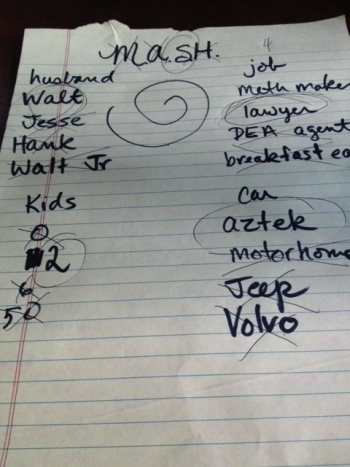 M.A.S.H.
4
husband
Walt
Jesse
Hank
Walt Jr
job
meth maker
lawyer
DEA agent
breakfast ea
Kids
0
2
6
50
Car
aztek
motorhome
Jeep
Volvo